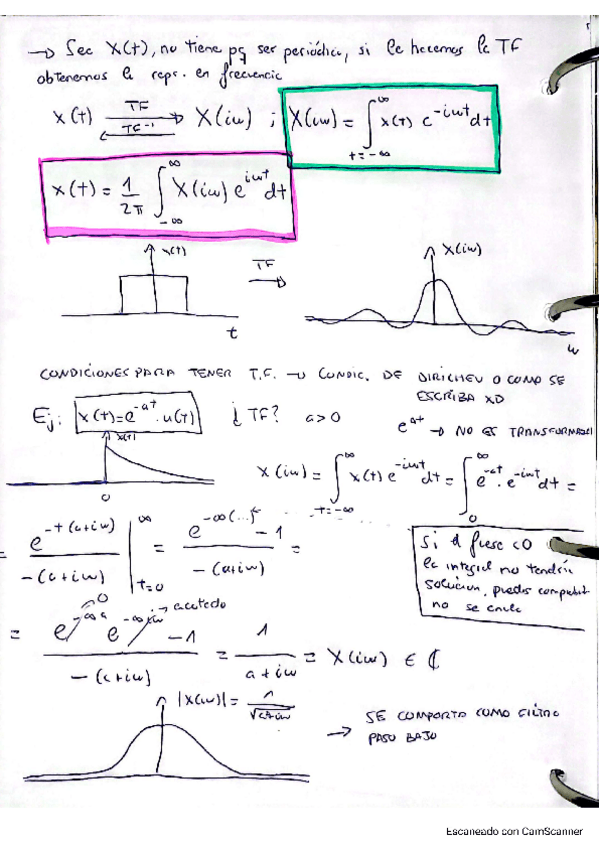 → Sea x(t), no tiene pq ser periódica, si le hacemos la TF
obtenemos la repr. en frecuencia
x(t) TF ⇄ TF⁻¹ X(iω) ; X(iω) = ∫_{t=-∞}^{∞} x(t) e^{-iωt} dt
x(t) = 1/2π ∫_{-∞}^{∞} X(iω) e^{iωt} dt
x(t) TF → X(iω)
t ω
CONDICIONES PARA TENER T.F. → CONDIC. DE DIRICHLEV O COMO SE
ESCRIBA XD
Ej: x(t)=e^{-at}·u(t) ¿TF? a>0 e^{at} → NO ES TRANSFORMABLE
x(t)
0
X(iω) = ∫_{t=-∞}^{∞} x(t) e^{-iωt} dt = ∫_{0}^{∞} e^{-at}·e^{-iωt} dt =
= e^{-t(a+iω)} / -(a+iω) |_{t=0}^{∞} = e^{-∞(...)} -1 / -(a+iω) =
Si a fuese <0
la integral no tendría
solución, puedes
no se
= e^{-∞a} → 0 e^{-∞iω} → acotado -1 / -(a+iω) = 1 / a+iω = X(iω) ∈ ℂ
|X(iω)| = 1 / √a+iω
→ SE COMPORTA COMO FILTRO
PASO BAJO
Escaneado con CamScanner